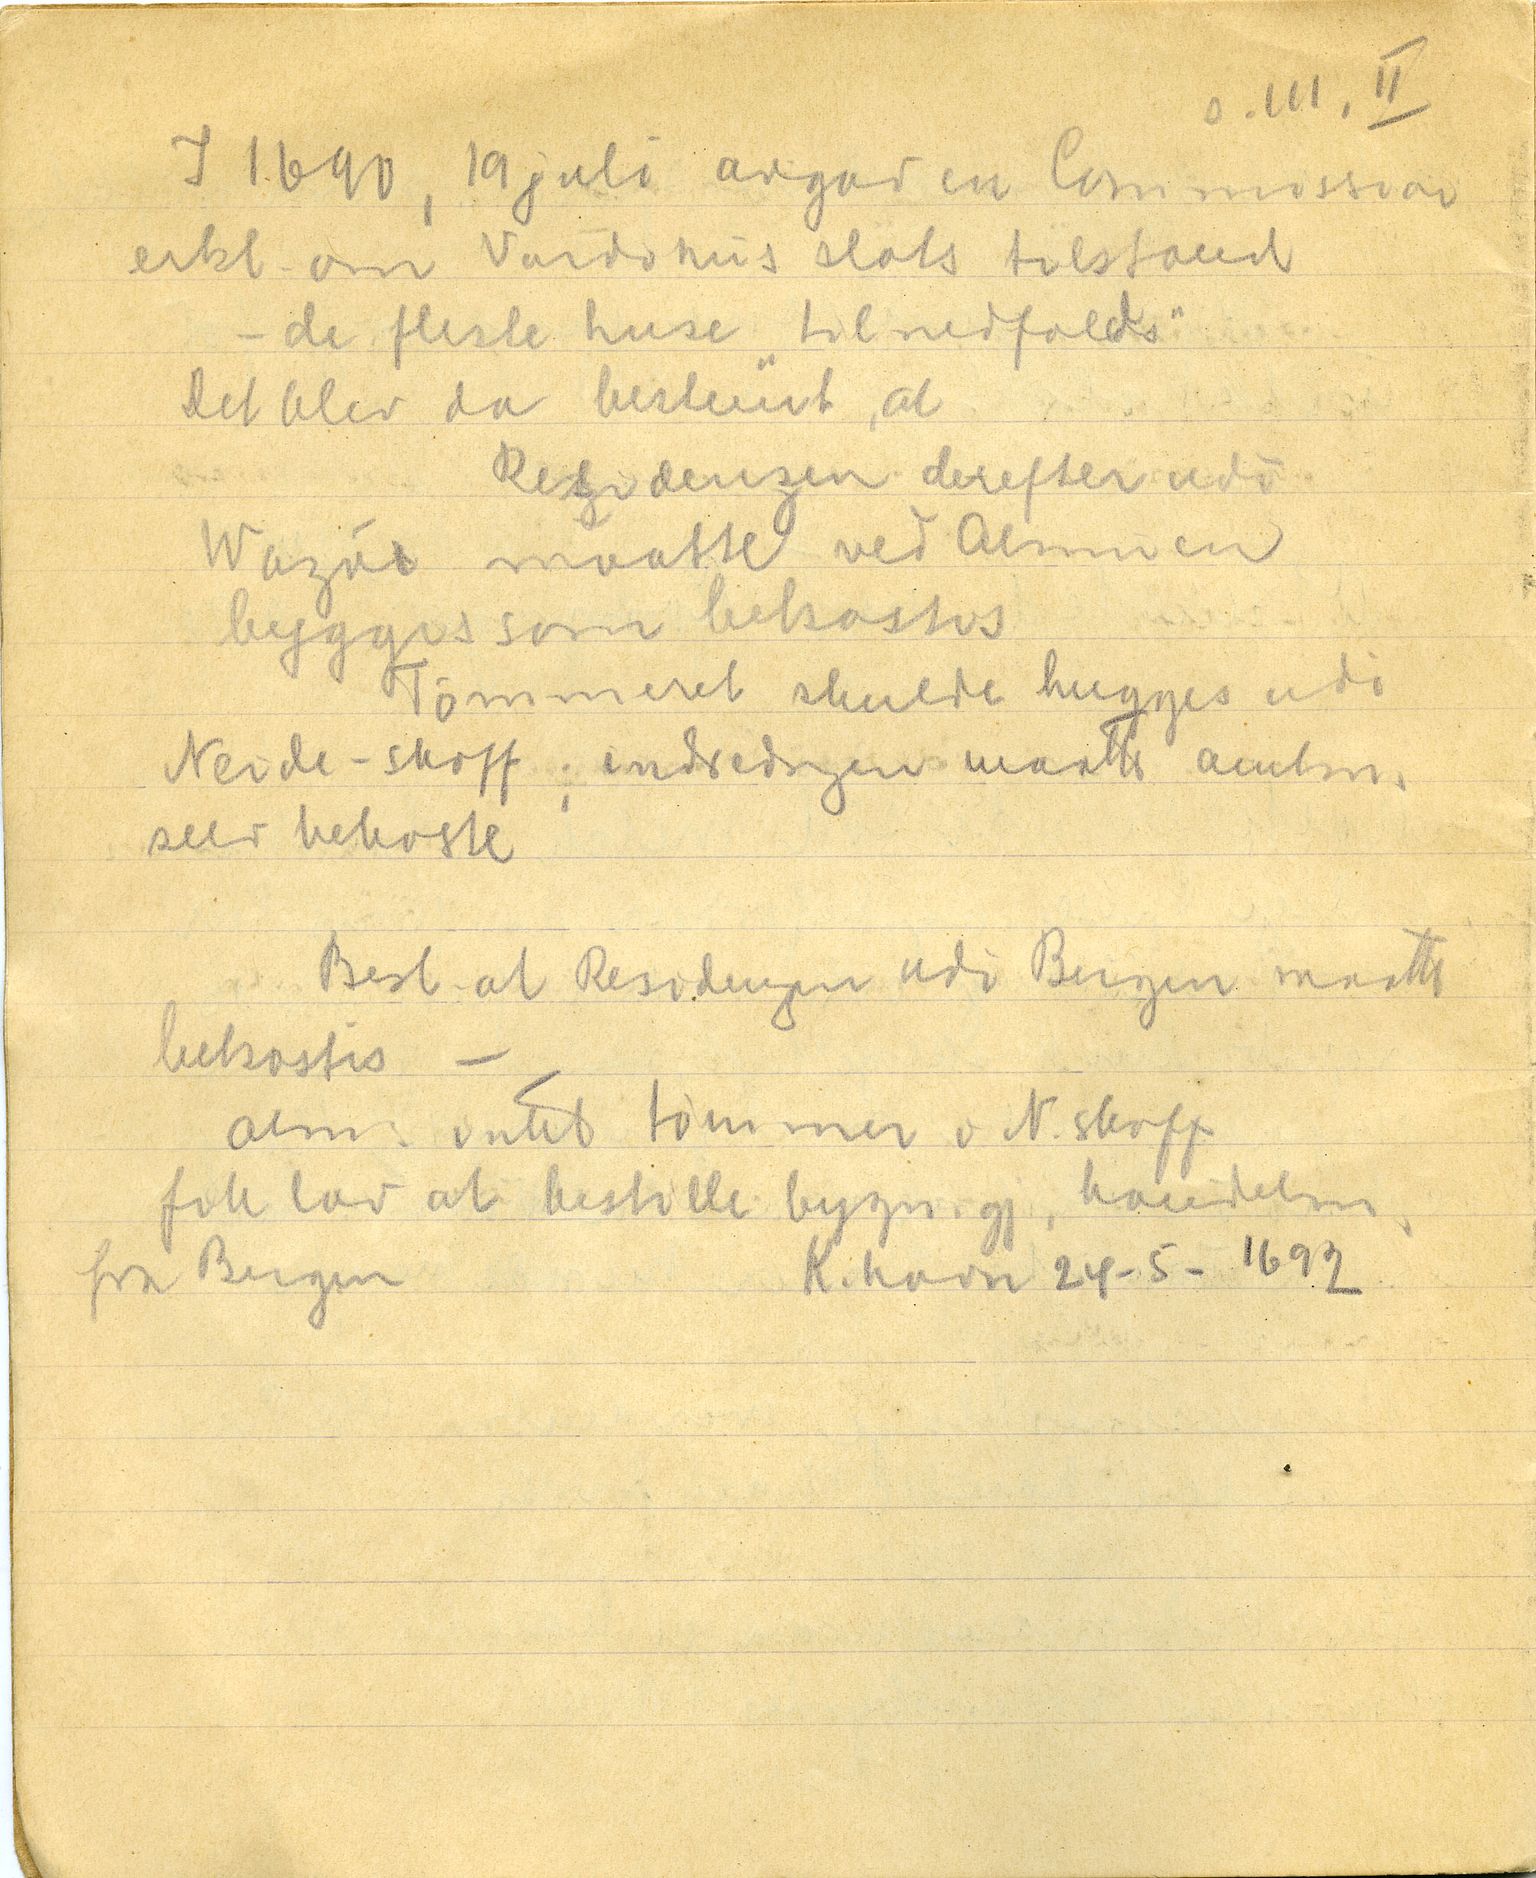 s. III, II
I 1690, 19 juli avgav en Commission
erkl. om Vardøhus slots tilstand
- de fleste huse til nedfalds"
Det blev da bestemt, at
Residenzen derefter udi
Wazöe maatte ved Almuen
bygges som bekostes
Tømmeret skulde hugges udi
Neide-skoff; indredngen maatte amtm.
selv bekoste
Best. at Residenzen udi Bergen maatte
bekostis —
alm. intet tømmer i N. skoff
fik lov at bestille bygn. gj. handelsm.
fra Bergen K.havn 24-5-1692